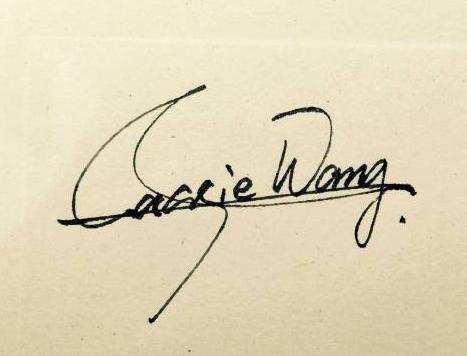 Carrie Wang.